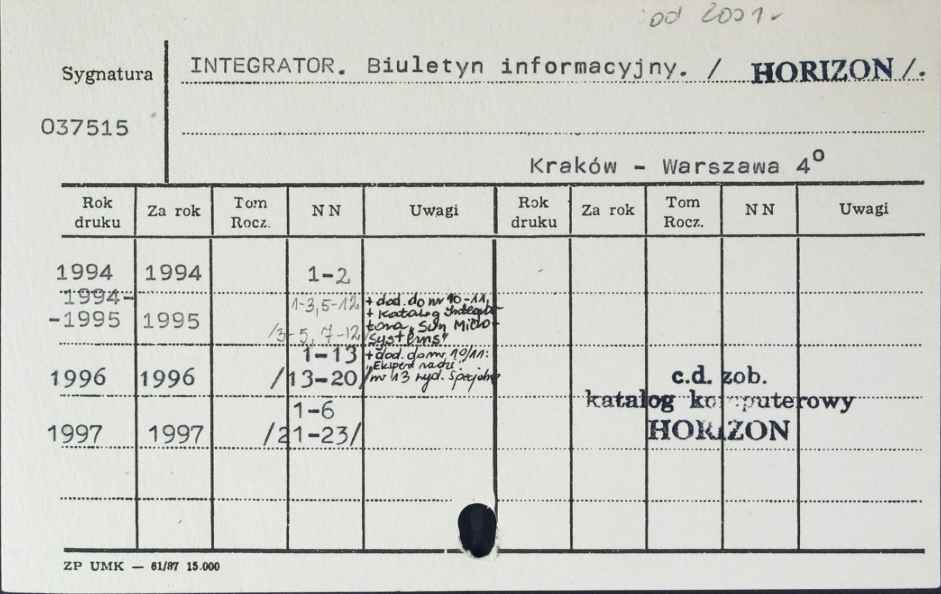 od 2001 r
Sygnatura
INTEGRATOR. Biuletyn informacyjny. / HORIZON /.
037515
Kraków - Warszawa 4°
Rok druku Za rok Tom Rocz. NN Uwagi Rok druku Za rok Tom Rocz. NN Uwagi
1994 1994 1-2
1994- 1-3,5-12 + dod. do nr 10-11,
+ Katalog Integra-
-1995 1995 /3-5, 7-12/ tora "Sun Micro-
systems"
1-13 + dod. do nr 10/11:
1996 1996 /13-20/ nr 13 wyd. specjalne
c.d. zob.
katalog komputerowy
HORIZON
1-6
1997 1997 /21-23/
ZP UMK — 61/87 15.000